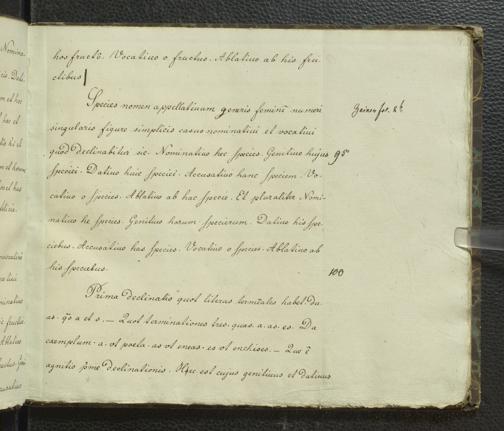 hos fructꝰ. Vocatiuo o fructus. Ablatiuo ab his fru
ctibus
Species nomen appellatiuum generis feminī numeri
singularis figure simplicis casus nominatiui et vocatiui
quod declinabitur sic. Nominatiuo hec species. Genitiuo hujus 95
speciei. Datiuo huic speciei. Accusatiuo hanc speciem. Vo-
catiuo o species. Ablatiuo ab hac specie. Et pluraliter Nomi-
natiuo he species. Genitiuo harum specierum. Datiuo his spe-
ciebus. Accusatiuo has species. Vocatiuo o species. Ablatiuo ab
his speciebus. 100
Prima declinatio quot literas terminales habet du
as. a et s. — Quot terminationes tres. quas. a. as. es. Da
exemplum. a. vt poeta. as vt eneas. es vt enchises. — Que ē
agnitio prime declinationis. Hec est cujus genitiuus et datiuus